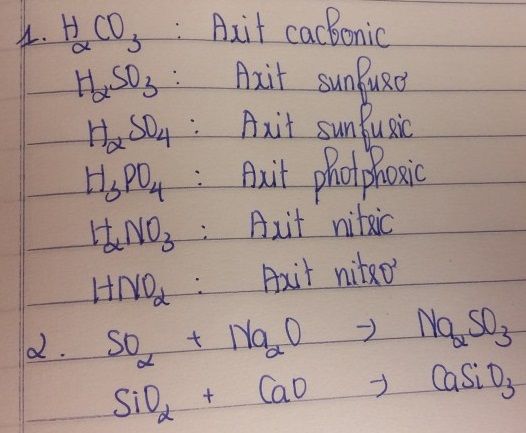 1. H₂CO₃ : Axit cacbonic
H₂SO₃ : Axit sunfurơ
H₂SO₄ : Axit sunfuric
H₃PO₄ : Axit photphoric
H₂NO₃ : Axit nitric
HNO₂ : Axit nitrơ
2. SO₂ + Na₂O → Na₂SO₃
SiO₂ + CaO → CaSiO₃